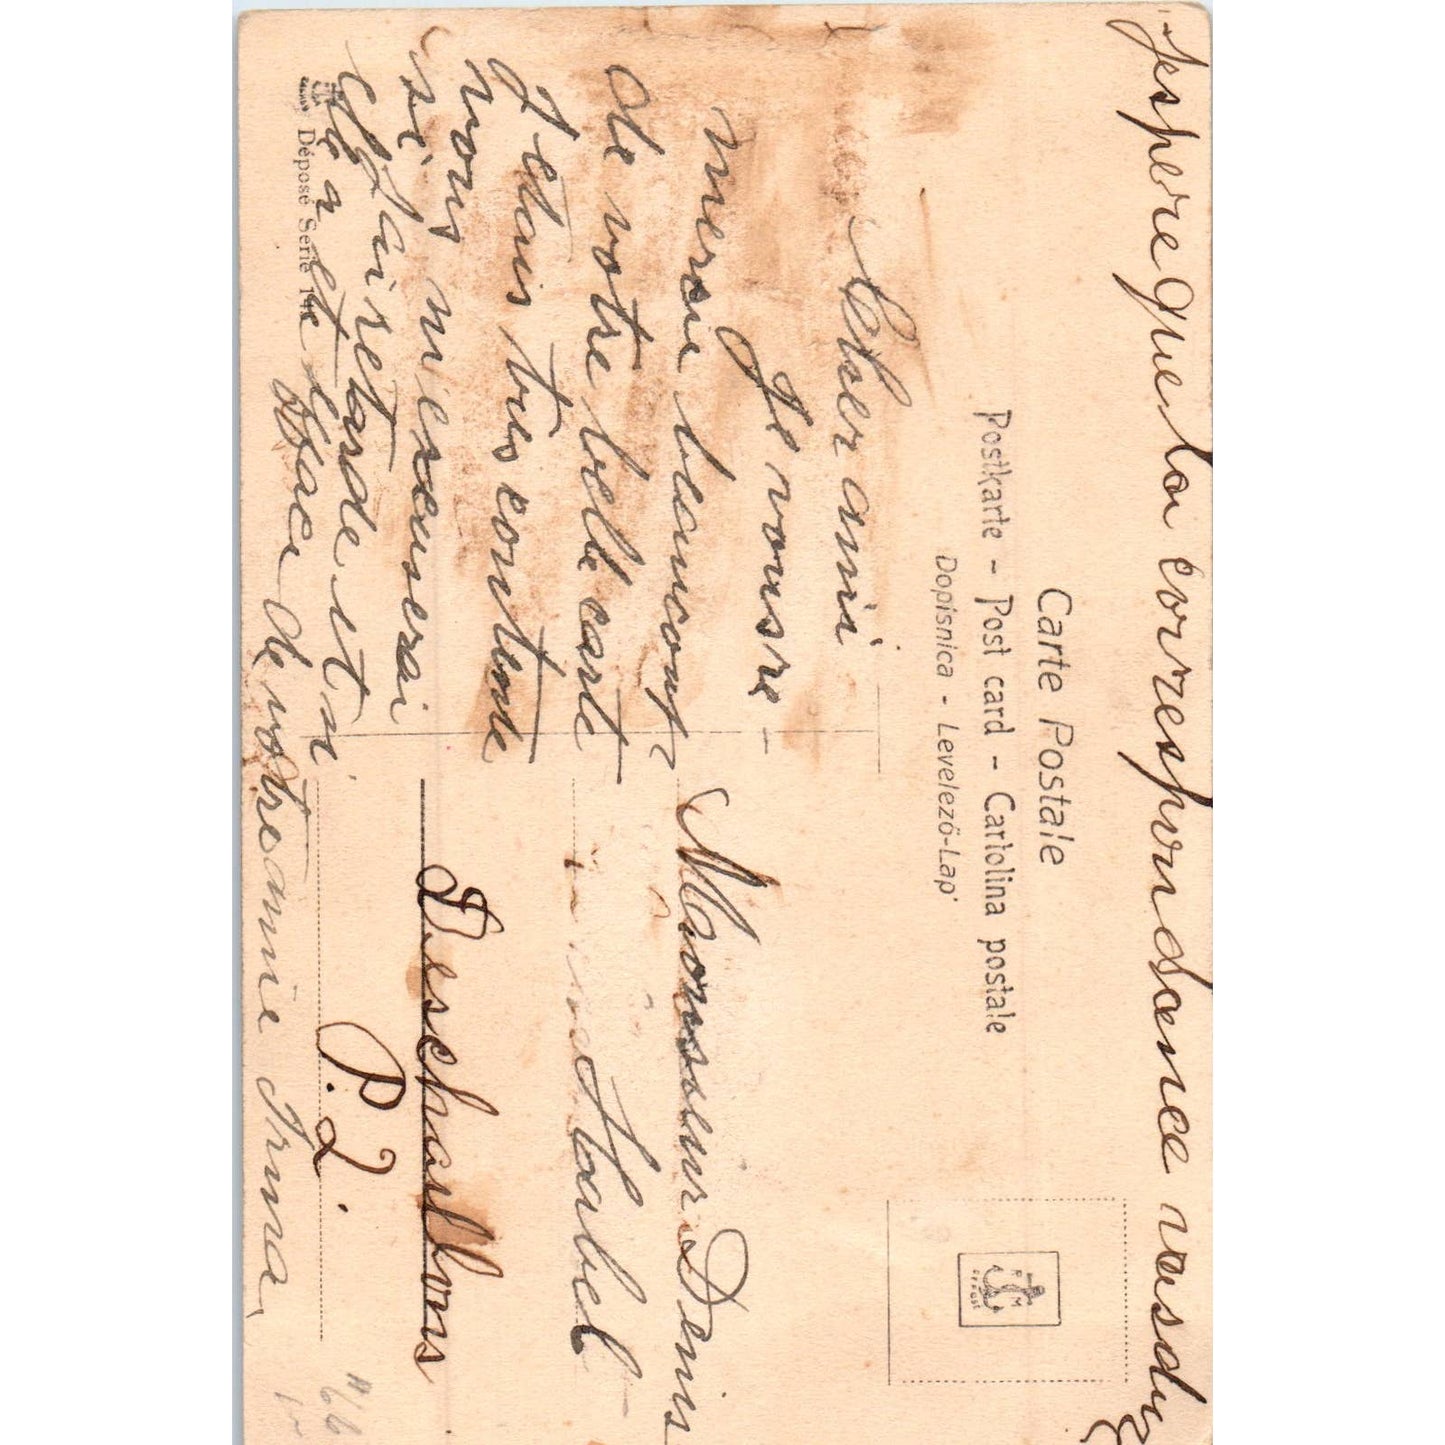 j'espere que la correspondance vas du
Carte Postale
Postkarte - Post card - Cartolina postale
Dopisnica - Levelező-Lap
Cher ami
Je vous re-
mercie beaucoup
de votre belle carte
J etais tres contente
vous m'excuserai
si
j'ai retarde et si
et
effacer de votre amie Irma
Monsieur Denis
Habel
Deschaillons
P.2.
Déposé Serie 14